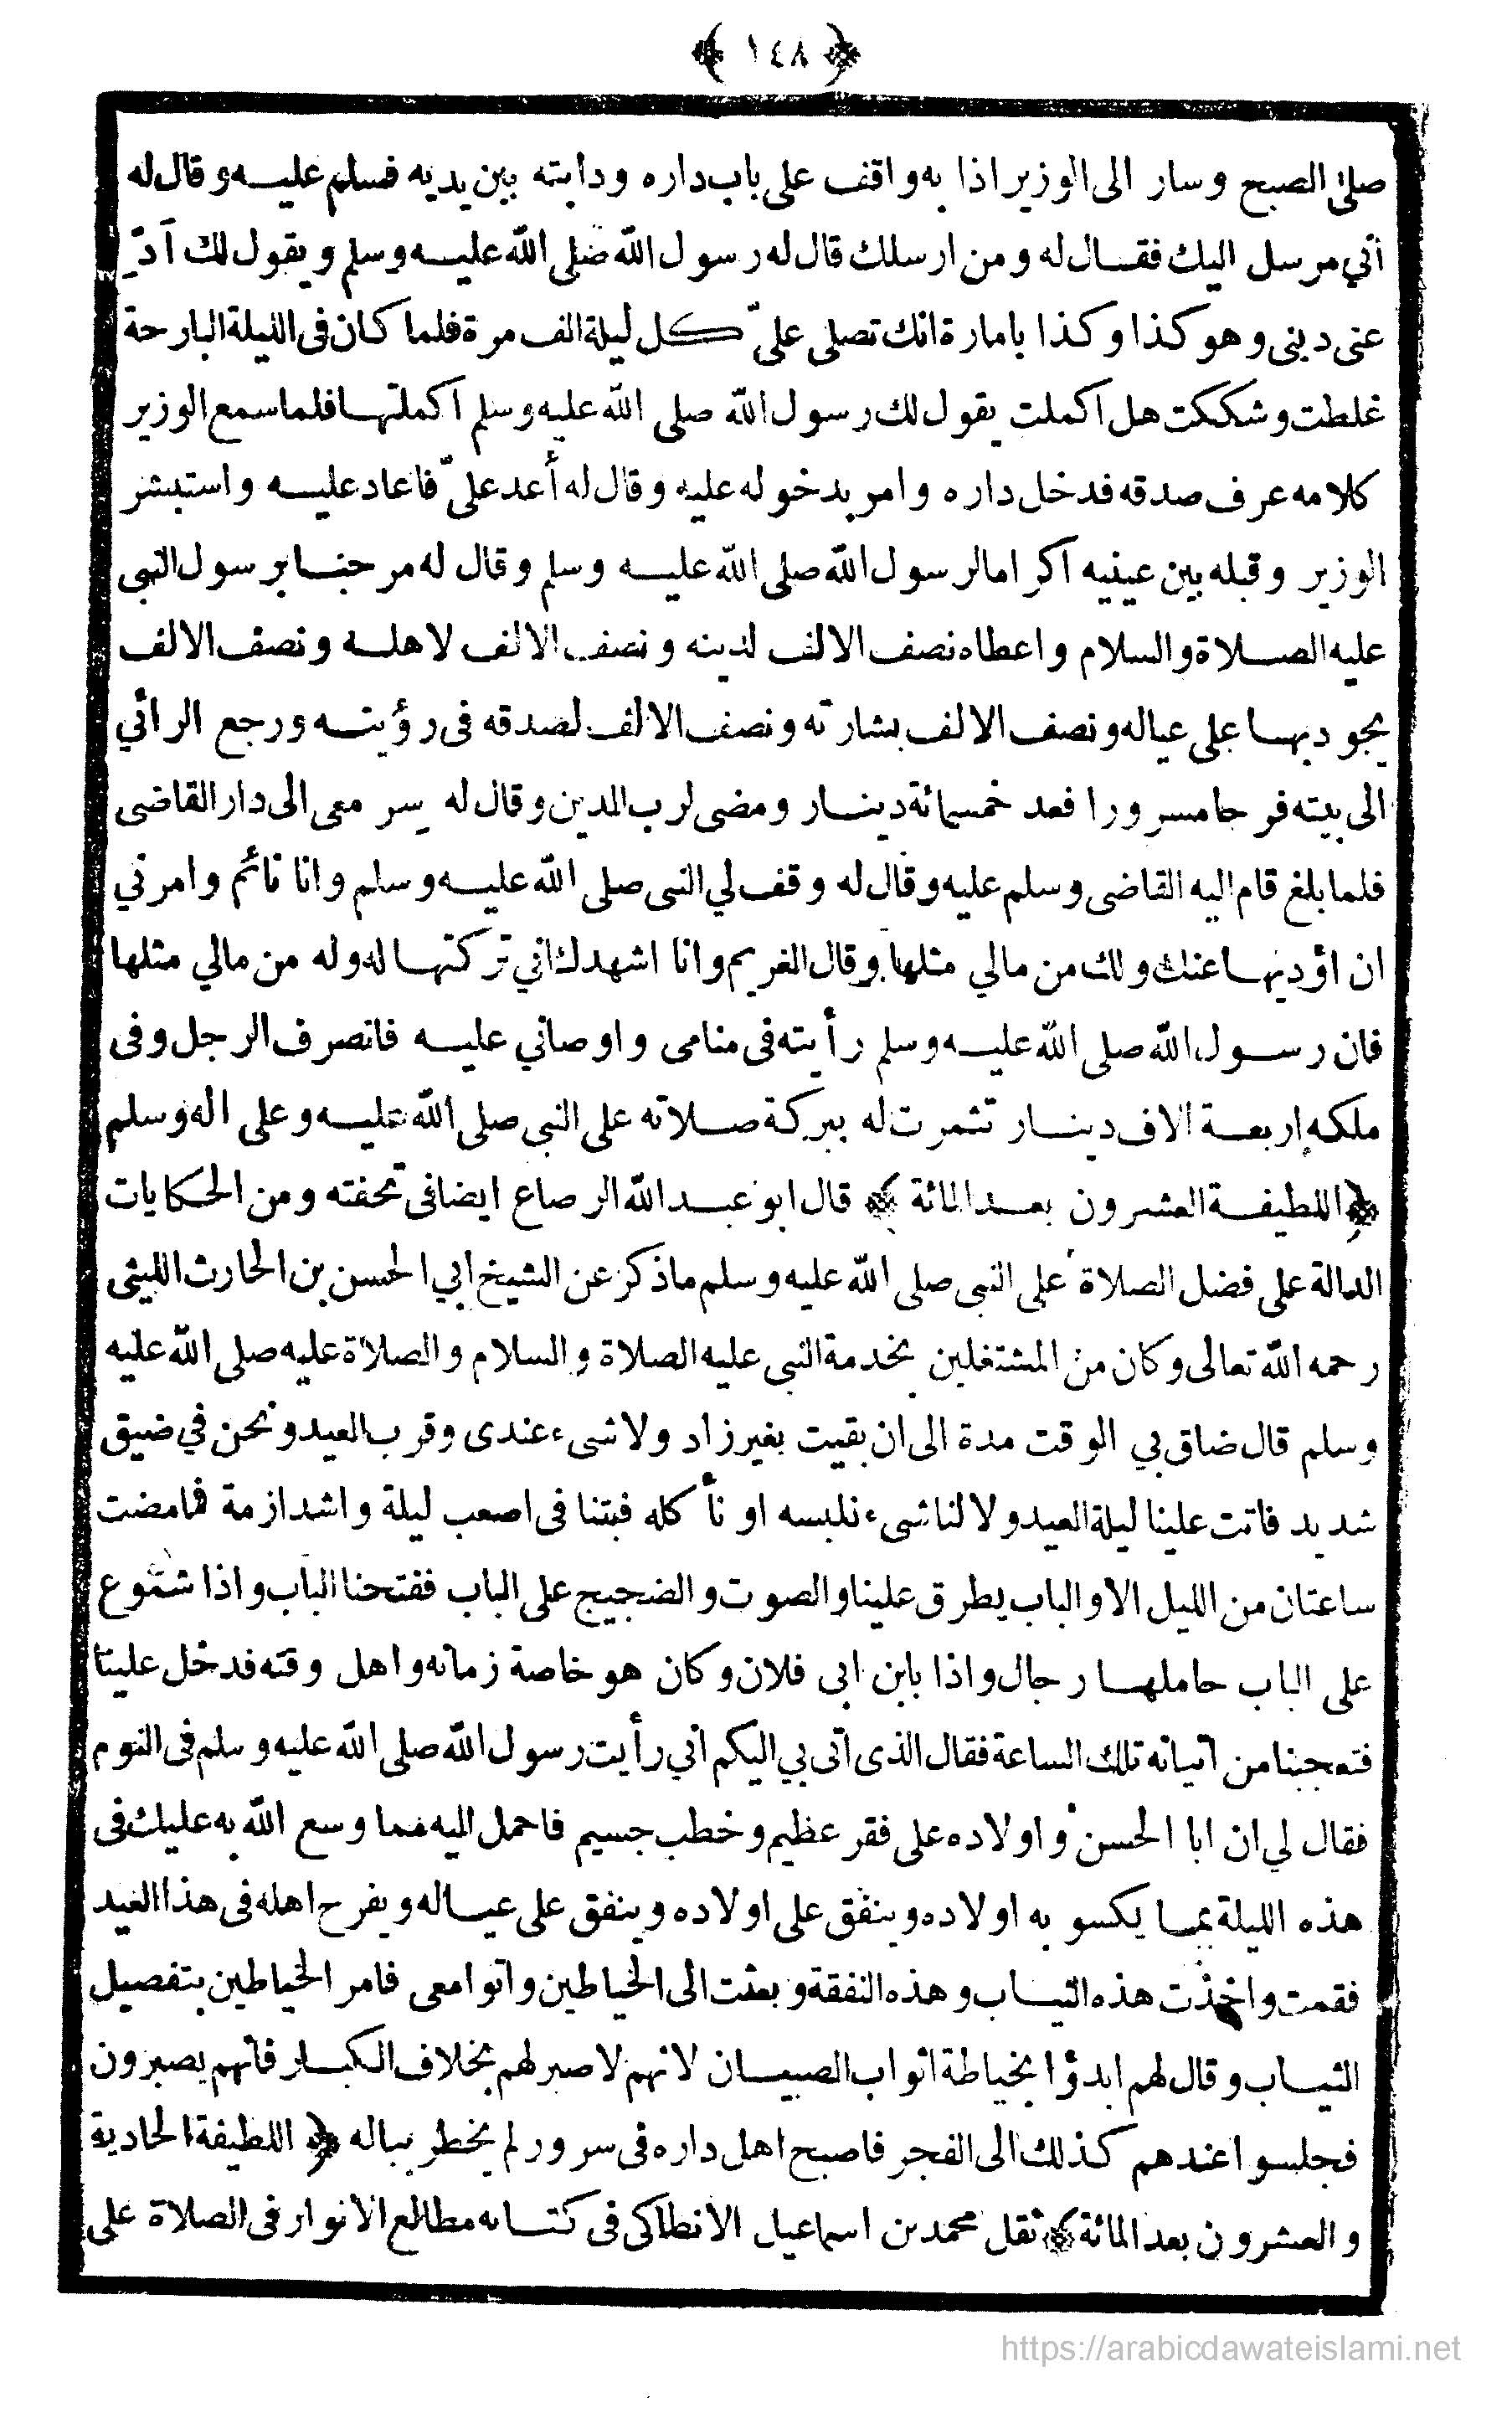 ﴿ ١٤٨ ﴾
صلى الصبح وسار الى الوزير اذا به واقف على باب داره ودابته بين يديه فسلم عليه وقال له
اني مرسل اليك فقال له ومن ارسلك قال له رسول الله صلى الله عليه وسلم ويقول لك ادّ
عنى دينى وهو كذا وكذا بامارة انك تصلى علىّ كل ليلة الف مرة فلما كان فى الليلة البارحة
غلطت وشككت هل اكملت يقول لك رسول الله صلى الله عليه وسلم اكملتها فلما سمع الوزير
كلامه عرف صدقه فدخل داره وامر بدخوله عليه وقال له أعد علىّ فاعاد عليه واستبشر
الوزير وقبله بين عينيه اكراما لرسول الله صلى الله عليه وسلم وقال له مرحبا برسول النبى
عليه الصلاة والسلام واعطاه نصف الالف لدينه ونصف الالف لاهله ونصف الالف
يجود بها على عياله ونصف الالف بشارته ونصف الالف لصدقه فى رؤيته ورجع الرائي
الى بيته فرحا مسرورا فعد خمسمائة دينار ومضى لرب الدين وقال له سر معى الى دار القاضى
فلما بلغ قام اليه القاضى وسلم عليه وقال له وقف لي النبى صلى الله عليه وسلم وانا نائم وامرني
ان اؤديها عنك ولك من مالي مثلها وقال الغريم وانا اشهدك اني تركتها له وله من مالي مثلها
فان رسول الله صلى الله عليه وسلم رأيته فى منامى واوصاني عليه فانصرف الرجل وفى
ملكه اربعة الاف دينار تثمرت له ببركة صلاته على النبي صلى الله عليه وعلى اله وسلم
﴿اللطيفة العشرون بعد المائة﴾ قال ابو عبد الله الرصاع ايضا فى تحفته ومن الحكايات
الدالة على فضل الصلاة على النبى صلى الله عليه وسلم ماذكر عن الشيخ ابي الحسن بن الحارث الليثى
رحمه الله تعالى وكان من المشتغلين بخدمة النبى عليه الصلاة والسلام والصلاة عليه صلى الله عليه
وسلم قال ضاق بي الوقت مدة الى ان بقيت بغير زاد ولا شىء عندى وقرب العيد ونحن في ضيق
شديد فاتت علينا ليلة العيد ولا لنا شىء نلبسه او نأكله فبتنا فى اصعب ليلة واشد ازمة فما مضت
ساعتان من الليل الا والباب يطرق علينا والصوت والضجيج على الباب ففتحنا الباب واذا شموع
على الباب حاملها رجال واذا بابن ابى فلان وكان هو خاصة زمانه واهل وقته فدخل علينا
فتعجبنا من اتيانه تلك الساعة فقال الذى اتى بي اليكم اني رأيت رسول الله صلى الله عليه وسلم فى النوم
فقال لي ان ابا الحسن واولاده على فقر عظيم وخطب جسيم فاحمل اليه مما وسع الله به عليك فى
هذه الليلة بما يكسو به اولاده وينفق على اولاده وينفق على عياله ويفرح اهله فى هذا العيد
فقمت واخذت هذه الثياب وهذه النفقة وبعثت الى الخياطين واتوا معى فامر الخياطين بتفصيل
الثياب وقال لهم ابدؤا بخياطة اثواب الصبيان لانهم لا صبر لهم بخلاف الكبار فانهم يصبرون
فجلسوا عندهم كذلك الى الفجر فاصبح اهل داره فى سرور لم يخطر بباله ﴿اللطيفة الحادية
والعشرون بعد المائة﴾ نقل محمد بن اسماعيل الانطاكى فى كتابه مطالع الانوار فى الصلاة على
https://arabicdawateislami.net